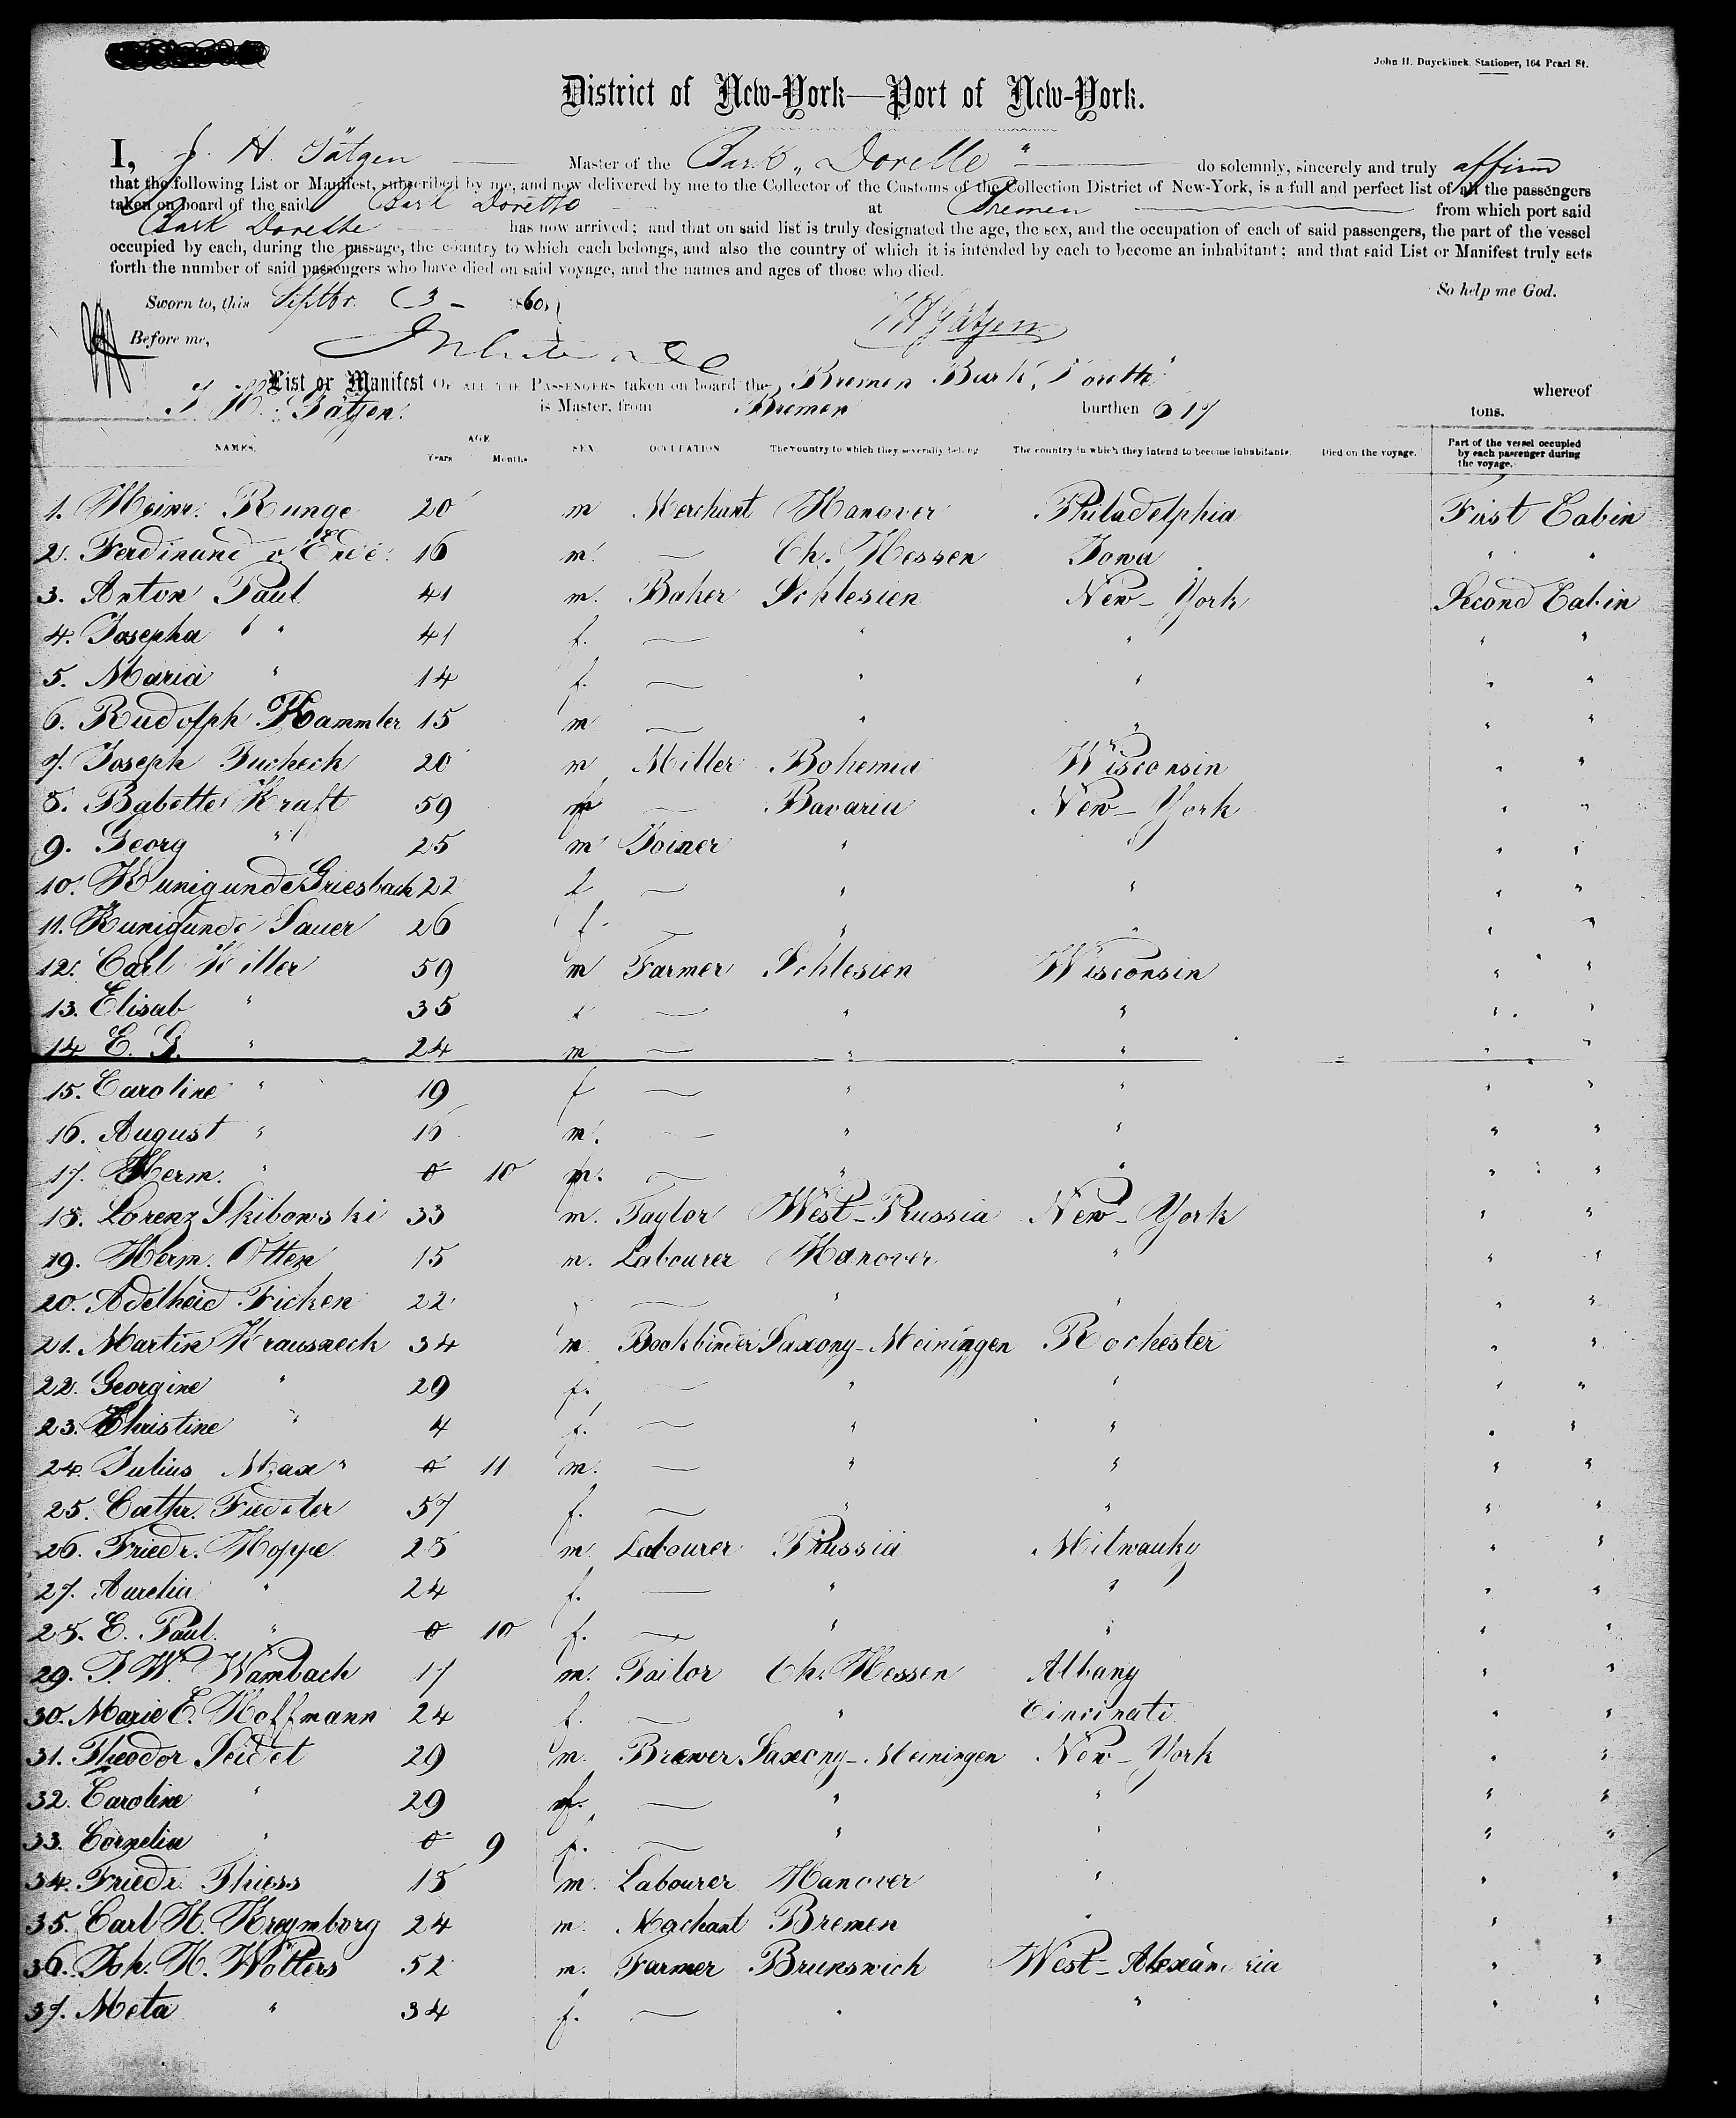 John H. Duyckinck, Stationer, 164 Pearl St.
District of New-York—Port of New-York.
I, J. H. Gätjen Master of the Bark „Dorette" do solemnly, sincerely and truly affirm
that the following List or Manifest, subscribed by me, and now delivered by me to the Collector of the Customs of the Collection District of New-York, is a full and perfect list of all the passengers
taken on board of the said Bark Dorette at Bremen from which port said
Bark Dorette has now arrived; and that on said list is truly designated the age, the sex, and the occupation of each of said passengers, the part of the vessel
occupied by each, during the passage, the country to which each belongs, and also the country of which it is intended by each to become an inhabitant; and that said List or Manifest truly sets
forth the number of said passengers who have died on said voyage, and the names and ages of those who died.
So help me God.
Sworn to, this Septbr. 3 – 1860
JH Gätjen
Before me,
List or Manifest OF ALL THE PASSENGERS taken on board the Bremen Bark „Dorette" whereof
J. H. Gätjen. is Master, from Bremen burthen 617 tons.
NAMES. AGE Years Months SEX OCCUPATION The country to which they severally belong The country in which they intend to become inhabitants. Died on the voyage. Part of the vessel occupied by each passenger during the voyage.
1. Heinr. Runge 20 m Merchant Hanover Philadelphia First Cabin
2. Ferdinand v. Ende 16 m. — Ch. Hessen Iowa " "
3. Anton Paul 41 m. Baker Schlesien New-York Second Cabin
4. Josepha " 41 f. — " " " "
5. Maria " 14 f. — " " " "
6. Rudolph Hammler 15 m — " " " "
7. Joseph Fucheck 20 m Miller Bohemia Wisconsin " "
8. Babette Kraft 59 f — Bavaria New-York " "
9. Georg " 25 m Joiner " " " "
10. Kunigunde Griesbach 22 f — " " " "
11. Kunigunde Sauer 26 f. — " " " "
12. Carl Hiller 59 m Farmer Schlesien Wisconsin " "
13. Elisab " 35 f — " " " "
14 E. G. " 24 m — " " " "
15. Caroline " 19 f — " " " "
16. August " 16 m. — " " " "
17. Herm. " 0 10 m. — " " " "
18. Lorenz Skibowski 33 m. Taylor West-Prussia New-York " "
19. Herm. Otten 15 m. Labourer Hanover " " "
20. Adelheid Ficken 22 — " " " "
21. Martin Krausneck 34 m Bookbinder Saxony-Meiningen Rochester " "
22. Georgine " 29 f. — " " " "
23. Christine " 4 f. — " " " "
24. Julius Max " 0 11 m. — " " " "
25. Cathr. Fiedeler 57 f. — " " " "
26. Friedr. Hoppe 28 m. Labourer Prussia Milwauky " "
27. Aurelia " 24 f. — " " " "
28. E. Paul. " 0 10 f. — " " " "
29. J. W. Wambach 17 m. Tailor Ch. Hessen Albany " "
30. Marie E. Hoffmann 24 f. — " Cincinati " "
31. Theodor Seidel 29 m. Brewer Saxony-Meiningen New-York " "
32. Caroline " 29 f. — " " " "
33. Cornelia " 0 9 f. — " " " "
34. Friedr. Thiess 15 m. Labourer Hanover " " "
35. Carl H. Kreymborg 24 m. Merchant Bremen " " "
36. Joh. H. Wolters 52 m. Farmer Brunswich West-Alexandria " "
37. Meta " 34 f. — " " " "